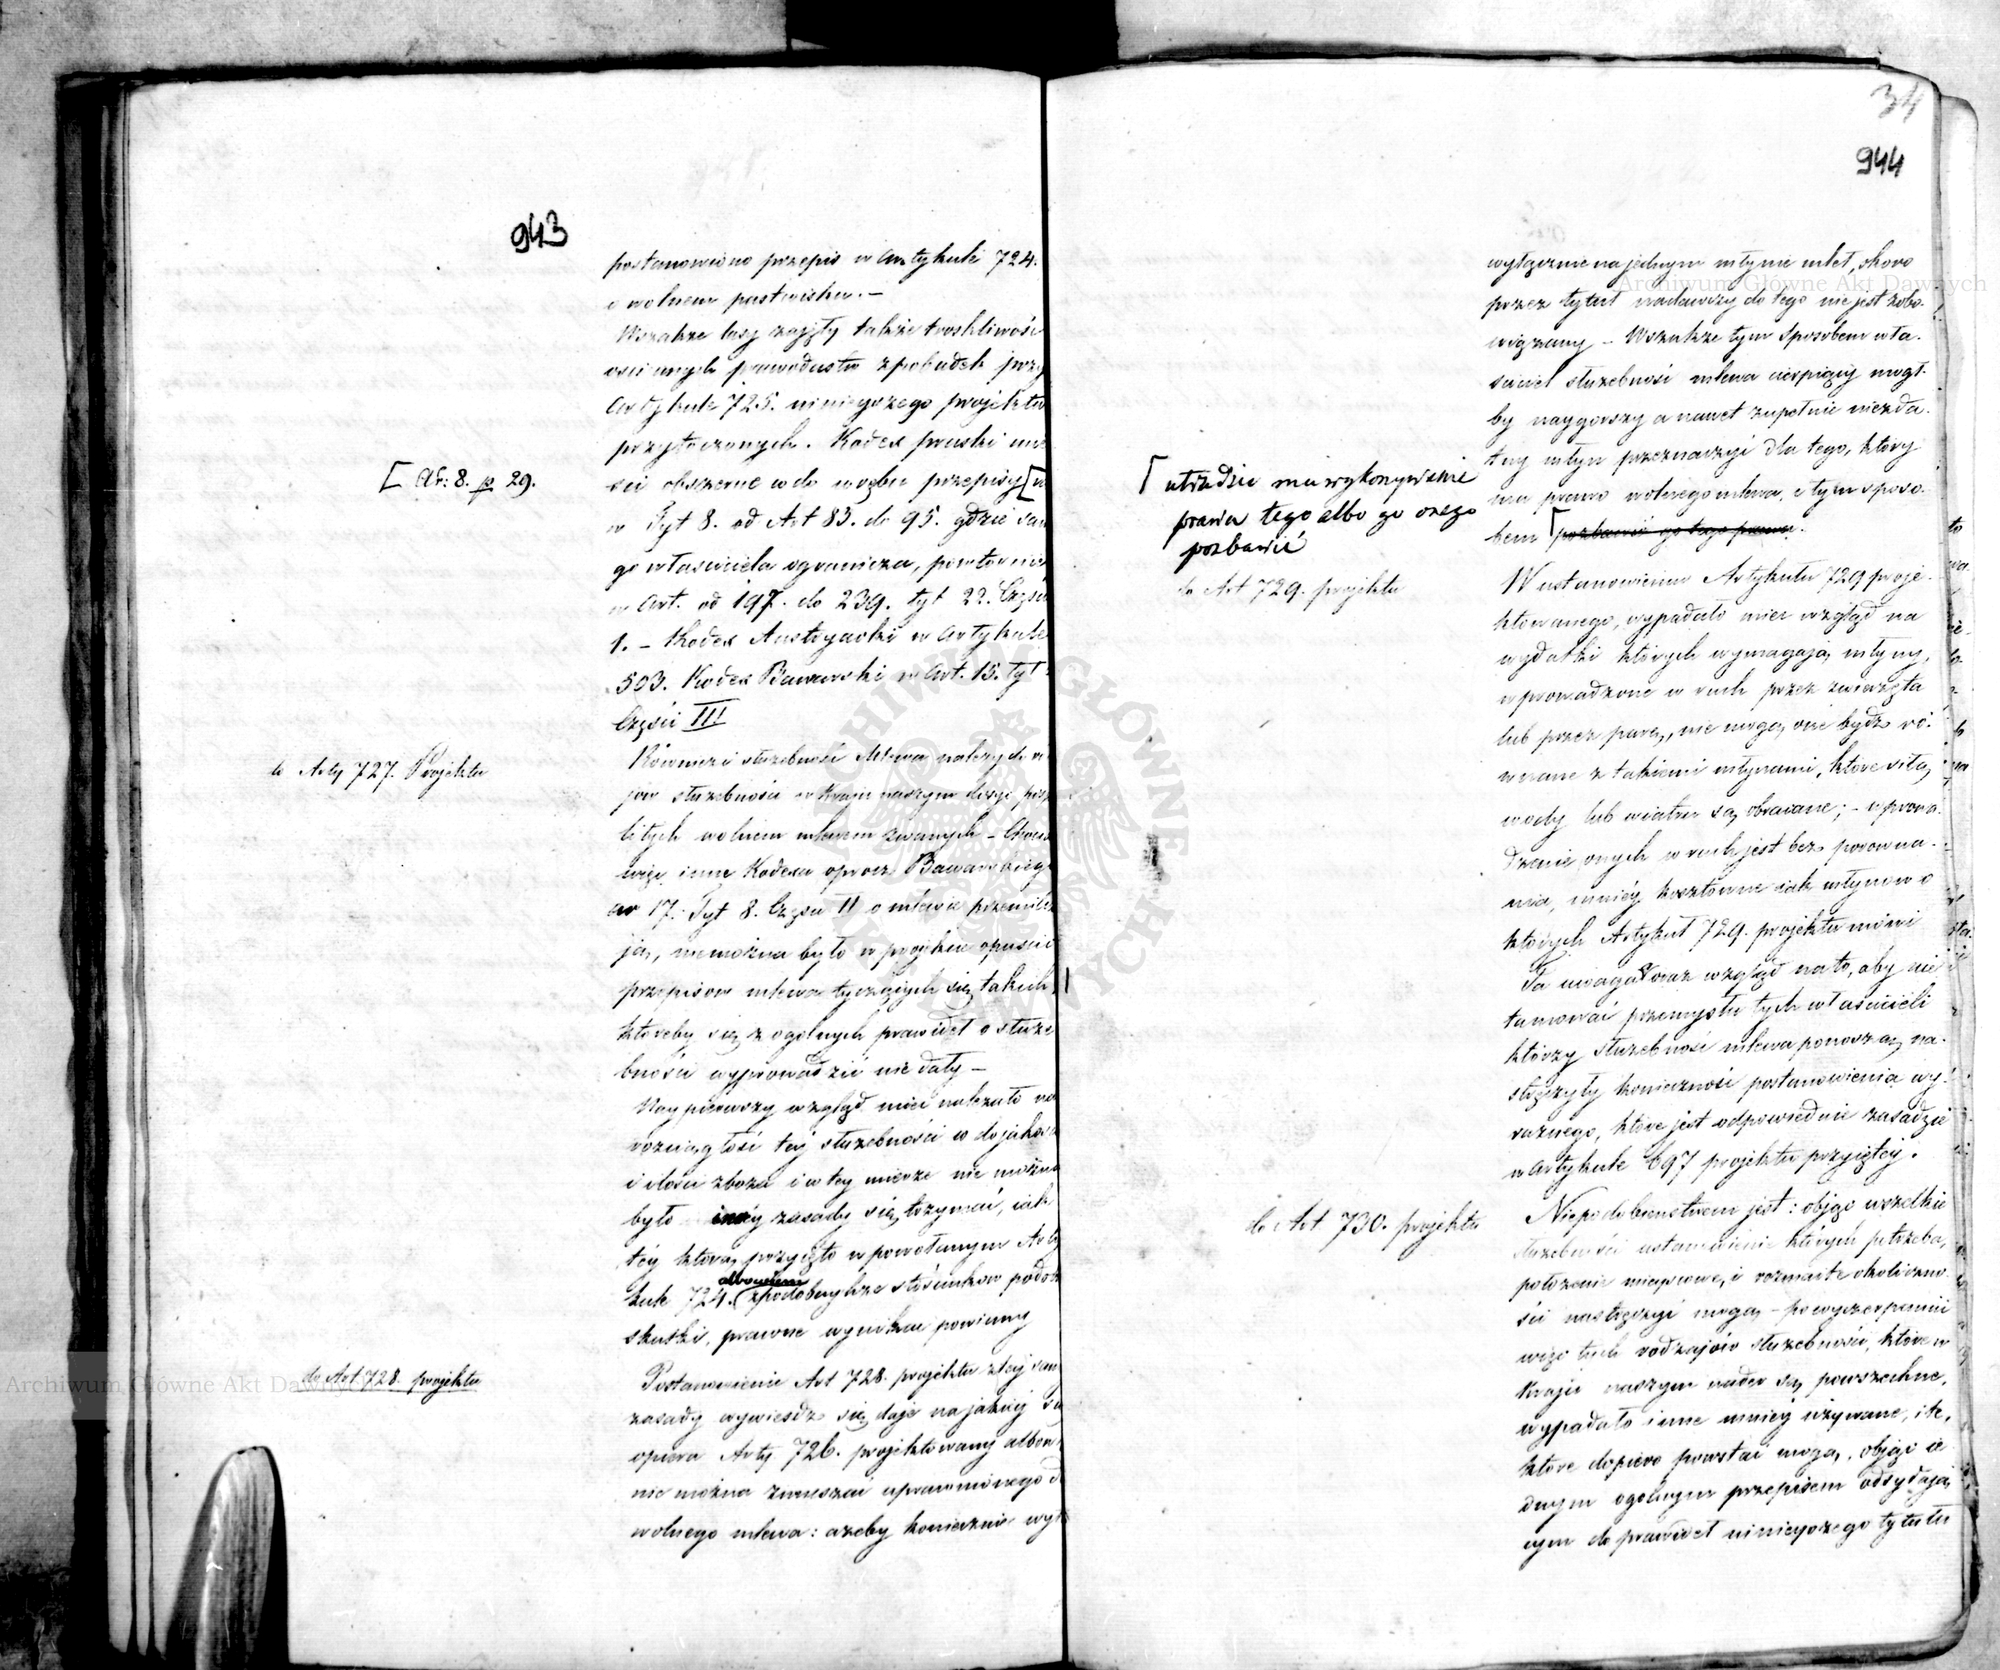 943
postanowiono przepis w Artykule 724.
o wolnem pastwisku. —
Wszakże lasy zajęły także troskliwość
ościennych prawodastw z pobudek przy
Artykule 725. ninieyszego projektu
przytoczonych. Kodex pruski mie
ści obszerne w do wrębu przepisy [w
[Ar: 8. p 29.
w Tyt 8. od Art 83. do 95. gdzie sam
go właściciela ogranicza, powtórnie
w Art. od 197. do 239. tyt 22. Części
1. – Kodex Austryacki w Artykule
503. Kodex Bawarski w Art. 15. tyt
Części III
do Arty 727. Projektu
Również służebność Mlewa należy do
jów służebności w kraju naszym dosyć pos
litych wolnem mlewem zwanych –
więc inne Kodexa oprócz Bawarskiego
ar 17. Tyt 8. Części II o mlewie przemilcza
ją, niemożna było w projekcie opuścić
przepisow mlewa tyczących się, takich,
któreby się z ogólnych prawideł o służe
bności wyprowadzić nie dały –
Naypierwszy wzgląd mieć należało na
rozciągłość tey służebności w do jakości
i ilości zboża i w tey mierze nie można
było inney zasady się trzymać, iak
tey którą przyięto w powołanym Arty
kule 724. albowiem z podobnychże stósunków podobne
skutki, prawne wynikać powinny
do Art 728. projektu
Postanowienie Art 728. projektu z tey sam
zasady wywieśdź się daje na jakiey się
opiera Arty 726. projektowany albow
nie można zmuszać uprawnionego d
wolnego mlewa: ażeby koniecznie wył
34
944
wyłącznie na jednym młynie mleł, skoro
przez tytuł nadawczy do tego nie jest zobo-
wiązany – Wszakże tym sposobem wła-
ściciel służebność mlewa cierpiący mógł-
by naygorszy a nawet zupełnie niezda-
tny młyn przeznaczyć dla tego, który
ma prawo wolnego mlewa, i tym sposo-
bem [pozbawić go tego prawa.
[utrudzić mu wykonywanie
prawa tego albo go onego
pozbawić
do Art 729. projektu
W ustanowieniu Artykułu 729 proje-
ktowanego, wypadało mieć wzgląd na
wydatki których wymagają młyny,
wprowadzone w ruch przez zwierzęta
lub przez parę, nie mogą one bydź ró-
wnane z takiemi młynami, które siłą
wody lub wiatru są obracane; – wprowa-
dzenie onych w ruch jest bez porówna-
nia, mniey kosztowne iak młynow o
których Artykuł 729. projektu mówi
Ta uwaga oraz wzgląd na to, aby nie
tamować przemysłu tych właścicieli
którzy służebność mlewa ponoszą, na-
stręczyły konieczność postanowienia wy-
raźnego, które jest odpowiednie zasadzie
w Artykule 697 projektu przyiętey.
do Art 730. projektu
Niepodobieństwem jest: objąć wszelkie
służebności ustanowienie którym potrzeba,
położenie mieyscowe, i rozmaite okoliczno-
ści nastręczyć mogą – po wyczerpaniu
więc tych rodzajów służebności, które w
kraju naszym nader są powszechne,
wypadało inne mniey używane, i te,
które dopiero powstać mogą, objąć ie
dnym ogólnym przepisem odsyłają
cym do prawideł ninieyszego tytułu